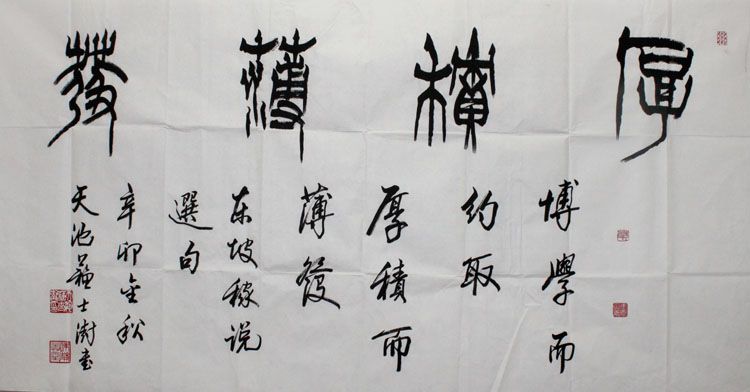 厚積薄發
博學而
約取
厚積而
薄發
东坡稼说
選句
辛卯金秋
天池蘇士澍書